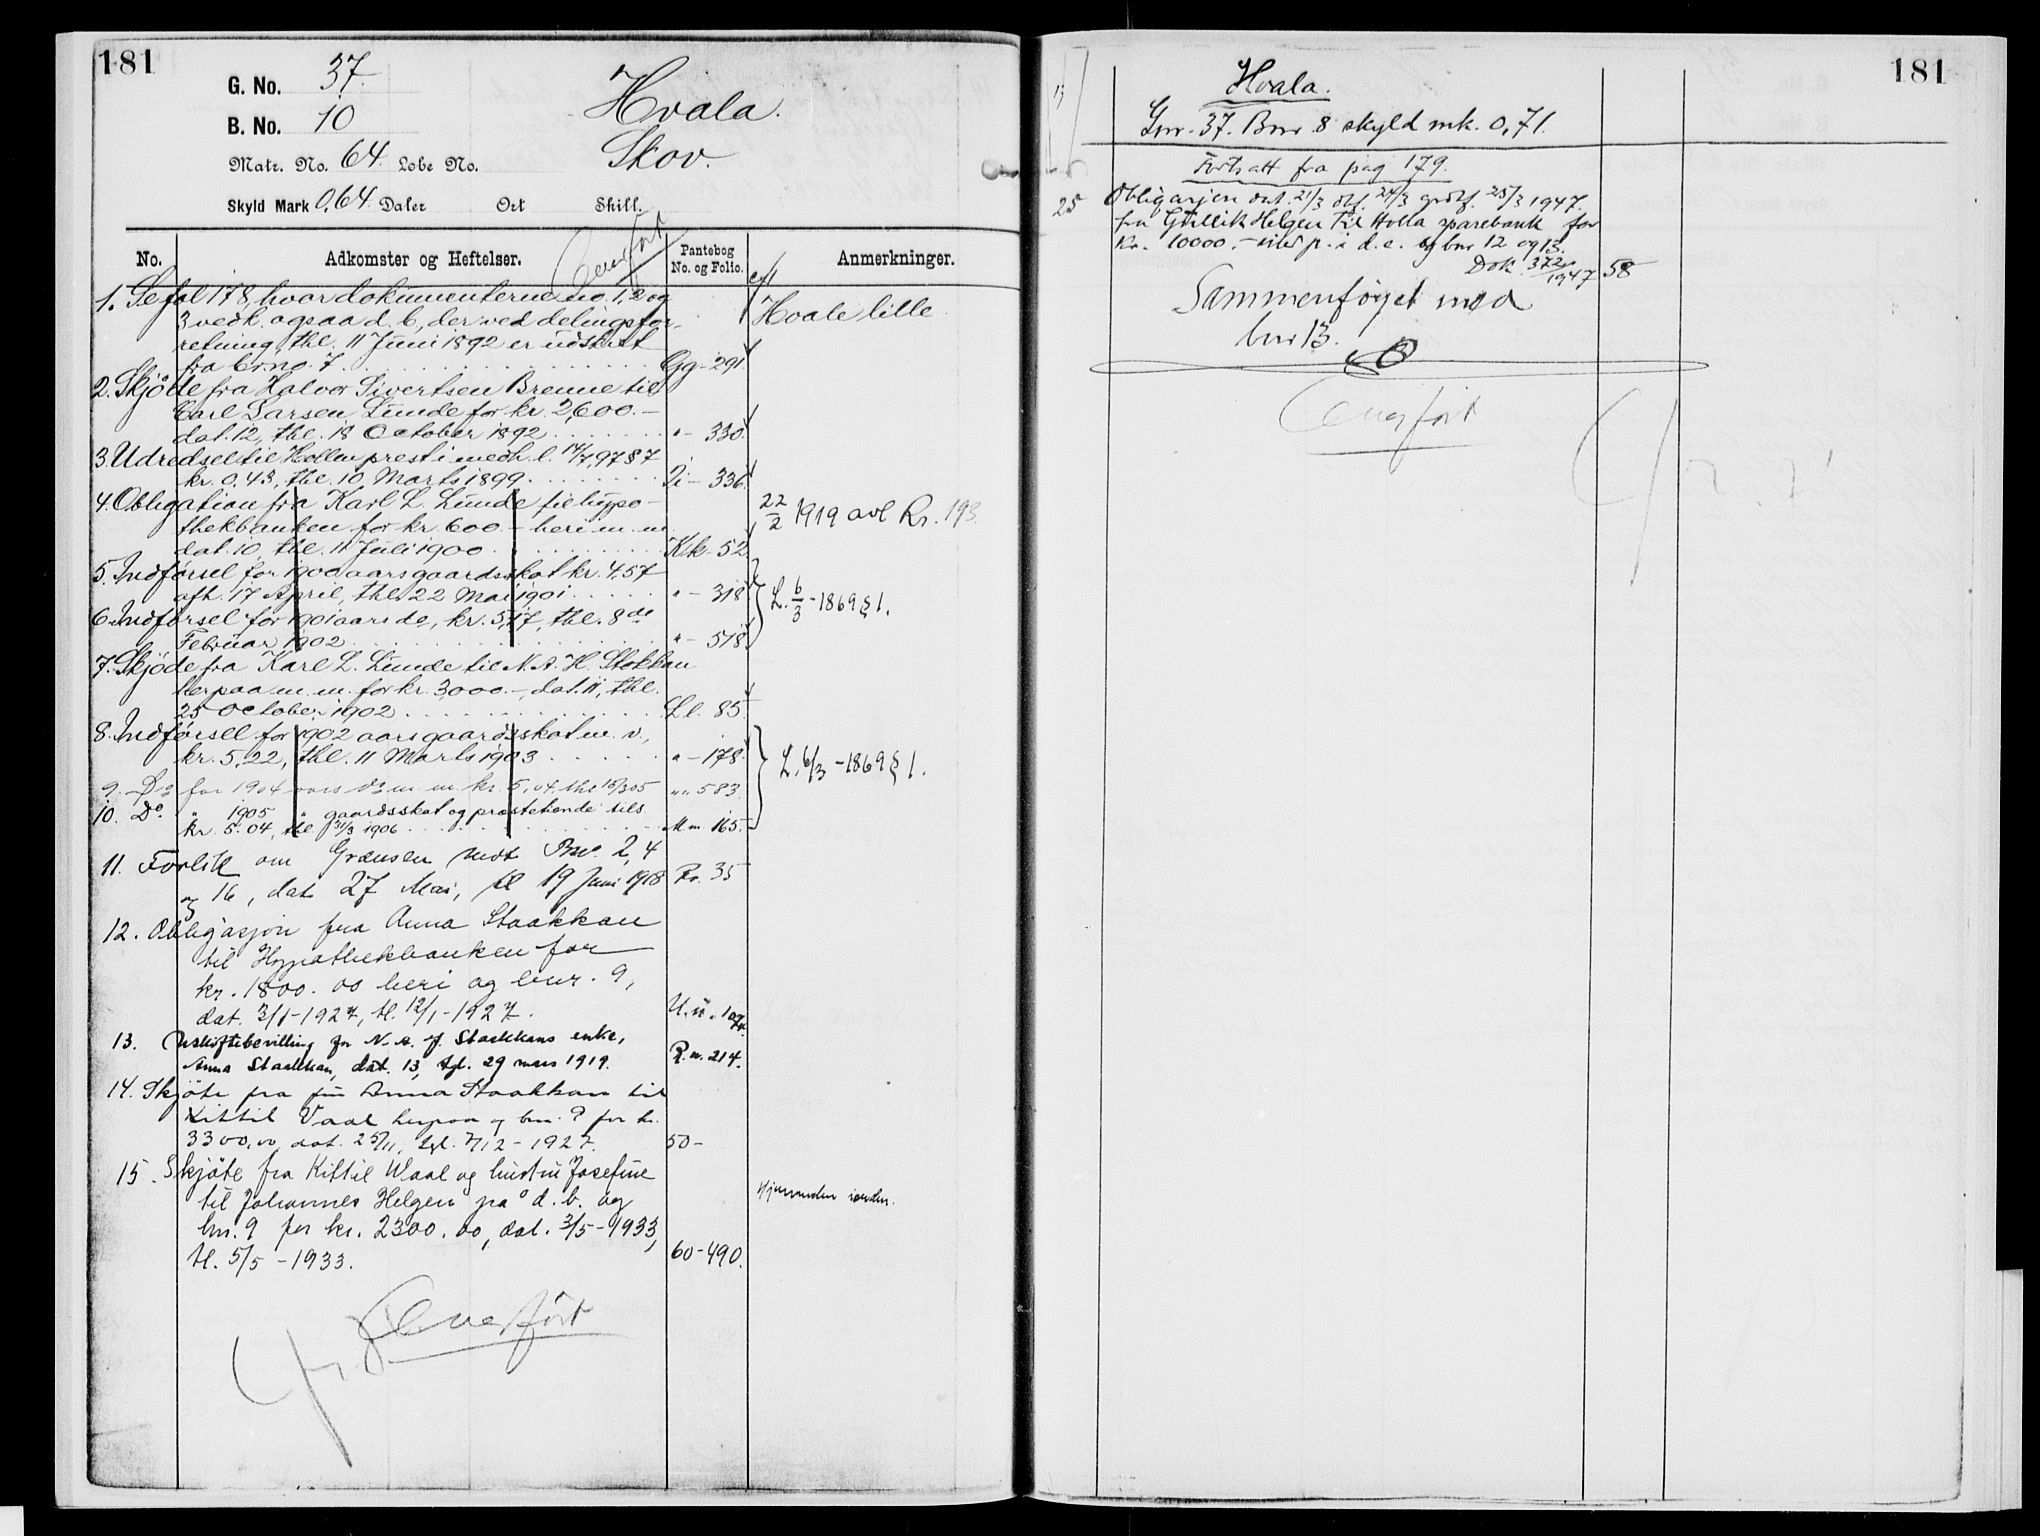 181
G. No. 37.
B. No. 10
Hvala.
Skov.
Matr. No. 64. Løbe No.
Skyld Mark 0,64. Daler Ort Skill.
No. Adkomster og Heftelser. Pantebog No. og Folio. Anmerkninger.
1. Se fol 178, hvor dokumenterne no. 1, 2 og
3 vedk. ogsaa d. b., der ved delingsfor-
retning, thl. 11 Juni 1892 er udskilt
fra brno. 7. Gg - 291.
Hvale lille
2. Skjøde fra Halvor Sivertsen Brenne til
Carl Larsen Lunde for kr. 2,600.-
dat. 12, thl. 18 October 1892 " - 330.
3. Udredsel til Hollen presti. medh. l. 14/7, 97 § 7
kr. 0,43, thl. 10 Marts 1899. Ii - 336.
4. Obligation fra Karl L. Lunde til hypo-
thekbanken for kr. 600.- heri m. m.
dat. 10, thl. 11 Juli 1900 Kk. 52
22/2 1919 avl Rr. 193.
5. Indførsel for 1900 aars gaardsskat kr. 4,57
afh. 17 April, thl. 22 Mai 1901 " - 318
L. 6/3 - 1869 § 1.
6. Indførsel for 1901 aars do, kr. 5,17, thl. 8de
Februar 1902 " - 518
7. Skjøde fra Karl L. Lunde til N. A. H. Stokkan
herpaa m. m. for kr. 3,000.-, dat. 11, thl.
25 October 1902 Ll. 85.
8. Indførsel for 1902 aars gaardsskat m. v.,
kr. 5,22, thl. 11 Marts 1903 " - 178.
L. 6/3 - 1869 § 1.
9. Do for 1904 aars do m. m. kr. 5,04, thl 15/3 05 " " 583.
10. Do. " 1905 " gaardsskat og præstetiende tils.
kr. 5.04, thl 31/3 1906 Mm 165.
11. Forlik om Grænsen mot Bno. 2, 4
og 16, dat 27 Mai, tl 19 Juni 1918 Rr. 35
12. Obligasjon fra Anna Staakkan
til Hypothekbanken for
kr. 1800.00 heri og bnr. 9,
dat. 3/1-1927, tl. 12/1-1927. U. u. 107.
13. Uskiftebevilling for N. A. H. Staakkans enke,
Anna Staakkan, dat. 13, tgl. 29 mars 1919. R. r. 214.
14. Skjöte fra fru Anna Staakkan til
Kittil Vaal herpaa og bnr. 9 for kr.
3300,00, dat. 25/11, tgl. 7/12-1927. 50-
15. Skjöte fra Kittil Waal og hustru Josefine
til Johannes Helgen på d. b. og
bnr. 9 for kr. 2300.00, dat. 3/5-1933,
tl. 5/5-1933. 60-490.
181
Hvala.
Gnr. 37. Bnr 8 skyld mk. 0,71.
Fortsatt fra pag 179.
25 Obligasjon dat. 21/3 dbf. 24/3 grbf. 25/3 1947.
fra Gullik Helgen til Holla sparebank for
kr. 10000.- i d. e. og bnr 12 og 13.
Dok. 372/1947 58
Sammenföyet med
bnr 13.